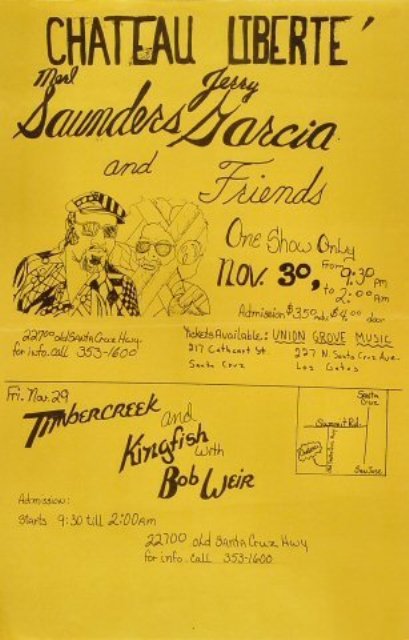 CHATEAU LIBERTE'
Merl Jerry
Saunders Garcia
and
Friends
One Show Only
NOV. 30, From 9:30 pm
to 2:00 am
Admission $3.50 adv. $4.00 door
22700 old Santa Cruz Hwy.
for info. call 353-1600
Tickets Available: UNION GROVE MUSIC
217 Cathcart St. 227 N. Santa Cruz Ave.
Santa Cruz Los Gatos
Fri. Nov. 29
TIMBERCREEK
and
Kingfish
with
Bob Weir
Santa
Cruz
Summit Rd.
San Jose
Admission:
Starts 9:30 till 2:00am
22700 old Santa Cruz Hwy
for info. call 353-1600